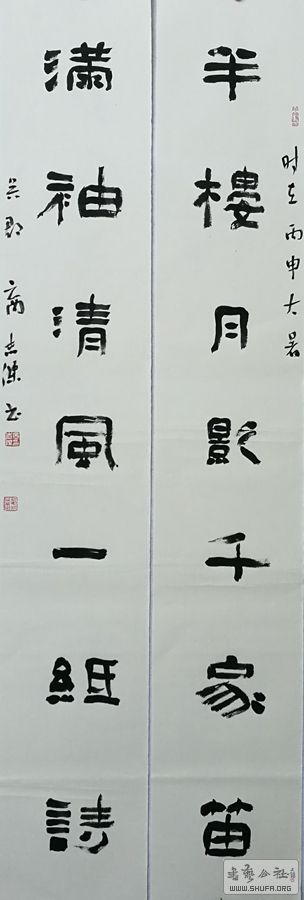 时在丙申大暑
半樓月影千家笛
满袖清風一紙詩
吴郡 商志潆书
WWW.SHUFA.ORG